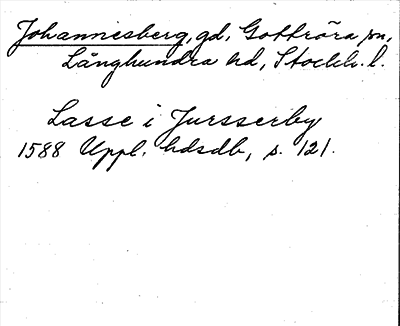 Johannesberg, gd, Gottröra sn,
Långhundra hd, Stockh. l.
Lasse i Jursserby
1588 Uppl. hdsdb, s. 121.